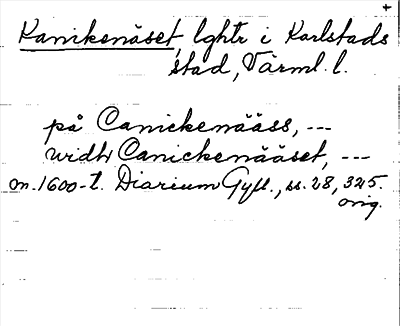 Kanikenäset, lghtr i Karlstads
stad, Värml. l.
på Canickenääss, ---
widh Canickenääset, ---
m. 1600-t. Diarium Gyll., ss. 28, 325.
orig.